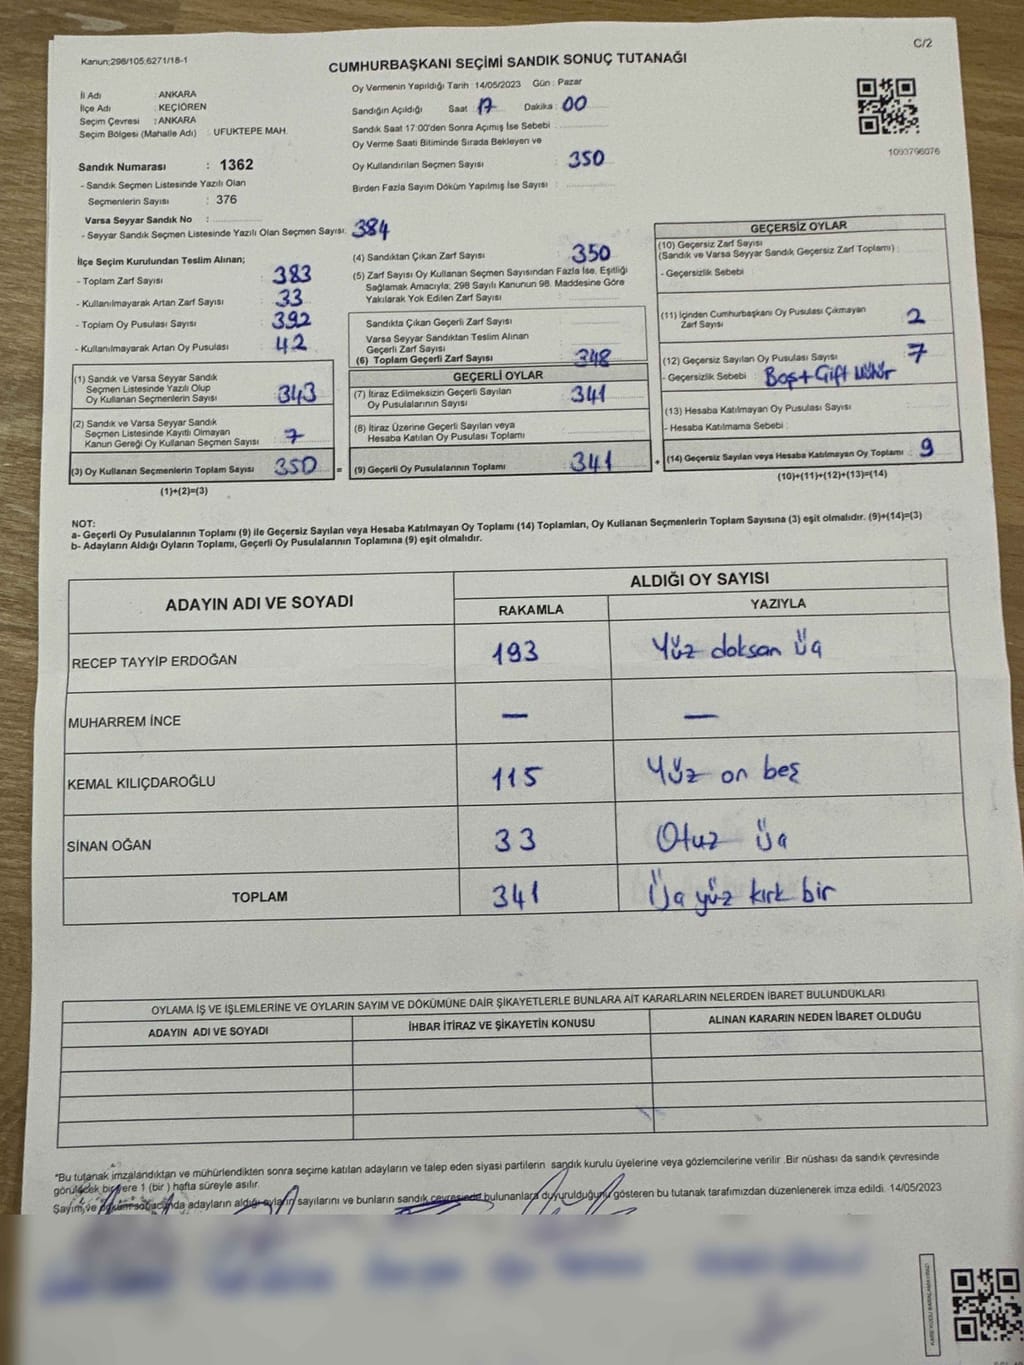 C/2
Kanun;298/105;6271/18-1
CUMHURBAŞKANI SEÇİMİ SANDIK SONUÇ TUTANAĞI
İl Adı : ANKARA
İlçe Adı : KEÇİÖREN
Seçim Çevresi : ANKARA
Seçim Bölgesi (Mahalle Adı) : UFUKTEPE MAH.
Sandık Numarası : 1362
- Sandık Seçmen Listesinde Yazılı Olan
Seçmenlerin Sayısı : 376
Varsa Seyyar Sandık No :
- Seyyar Sandık Seçmen Listesinde Yazılı Olan Seçmen Sayısı: 384
Oy Vermenin Yapıldığı Tarih : 14/05/2023 Gün : Pazar
Sandığın Açıldığı Saat : 17 Dakika : 00
Sandık Saat 17:00'den Sonra Açımış İse Sebebi :
Oy Verme Saati Bitiminde Sırada Bekleyen ve
Oy Kullandırılan Seçmen Sayısı : 350
Birden Fazla Sayım Döküm Yapılmış İse Sayısı :
1093796076
İlçe Seçim Kurulundan Teslim Alınan;
- Toplam Zarf Sayısı : 383
- Kullanılmayarak Artan Zarf Sayısı : 33
- Toplam Oy Pusulası Sayısı : 392
- Kullanılmayarak Artan Oy Pusulası : 42
(1) Sandık ve Varsa Seyyar Sandık
Seçmen Listesinde Yazılı Olup
Oy Kullanan Seçmenlerin Sayısı : 343
(2) Sandık ve Varsa Seyyar Sandık
Seçmen Listesinde Kayıtlı Olmayan
Kanun Gereği Oy Kullanan Seçmen Sayısı : 7
(3) Oy Kullanan Seçmenlerin Toplam Sayısı : 350 =
(1)+(2)=(3)
(4) Sandıktan Çıkan Zarf Sayısı : 350
(5) Zarf Sayısı Oy Kullanan Seçmen Sayısından Fazla İse, Eşitliği
Sağlamak Amacıyla; 298 Sayılı Kanunun 98. Maddesine Göre
Yakılarak Yok Edilen Zarf Sayısı :
Sandıkta Çıkan Geçerli Zarf Sayısı :
Varsa Seyyar Sandıktan Teslim Alınan
Geçerli Zarf Sayısı :
(6) Toplam Geçerli Zarf Sayısı : 348
GEÇERLİ OYLAR
(7) İtiraz Edilmeksizin Geçerli Sayılan
Oy Pusulalarının Sayısı : 341
(8) İtiraz Üzerine Geçerli Sayılan veya
Hesaba Katılan Oy Pusulası Toplamı :
(9) Geçerli Oy Pusulalarının Toplamı : 341 +
GEÇERSİZ OYLAR
(10) Geçersiz Zarf Sayısı
(Sandık ve Varsa Seyyar Sandık Geçersiz Zarf Toplamı) :
- Geçersizlik Sebebi :
(11) İçinden Cumhurbaşkanı Oy Pusulası Çıkmayan
Zarf Sayısı : 2
(12) Geçersiz Sayılan Oy Pusulası Sayısı : 7
- Geçersizlik Sebebi : Boş+Çift Mühür
(13) Hesaba Katılmayan Oy Pusulası Sayısı :
- Hesaba Katılmama Sebebi :
(14) Geçersiz Sayılan veya Hesaba Katılmayan Oy Toplamı : 9
(10)+(11)+(12)+(13)=(14)
NOT:
a- Geçerli Oy Pusulalarının Toplamı (9) ile Geçersiz Sayılan veya Hesaba Katılmayan Oy Toplamı (14) Toplamları, Oy Kullanan Seçmenlerin Toplam Sayısına (3) eşit olmalıdır. (9)+(14)=(3)
b- Adayların Aldığı Oyların Toplamı, Geçerli Oy Pusulalarının Toplamına (9) eşit olmalıdır.
ADAYIN ADI VE SOYADI
ALDIĞI OY SAYISI
RAKAMLA YAZIYLA
RECEP TAYYİP ERDOĞAN 193 Yüz doksan üç
MUHARREM İNCE — —
KEMAL KILIÇDAROĞLU 115 Yüz on beş
SİNAN OĞAN 33 Otuz üç
TOPLAM 341 Üç yüz kırk bir
OYLAMA İŞ VE İŞLEMLERİNE VE OYLARIN SAYIM VE DÖKÜMÜNE DAİR ŞİKAYETLERLE BUNLARA AİT KARARLARIN NELERDEN İBARET BULUNDUKLARI
ADAYIN ADI VE SOYADI İHBAR İTİRAZ VE ŞİKAYETİN KONUSU ALINAN KARARIN NEDEN İBARET OLDUĞU
*Bu tutanak imzalandıktan ve mühürlendikten sonra seçime katılan adayların ve talep eden siyasi partilerin sandık kurulu üyelerine veya gözlemcilerine verilir .Bir nüshası da sandık çevresinde
görülecek bir yere 1 (bir ) hafta süreyle asılır.
Sayım ve döküm sonucunda adayların aldığı oyların sayılarını ve bunların sandık çevresinde bulunanlara duyurulduğunu gösteren bu tutanak tarafımızdan düzenlenerek imza edildi. 14/05/2023